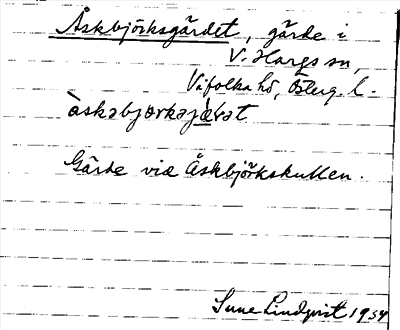 Åskbjörksgärdet, gärde i
V. Hargs sn,
Vifolka hd, Österg. l.
àskəbjørkəjǽrat
Gärde vid Åskbjörkskullen.
Sune Lindqvist 1934